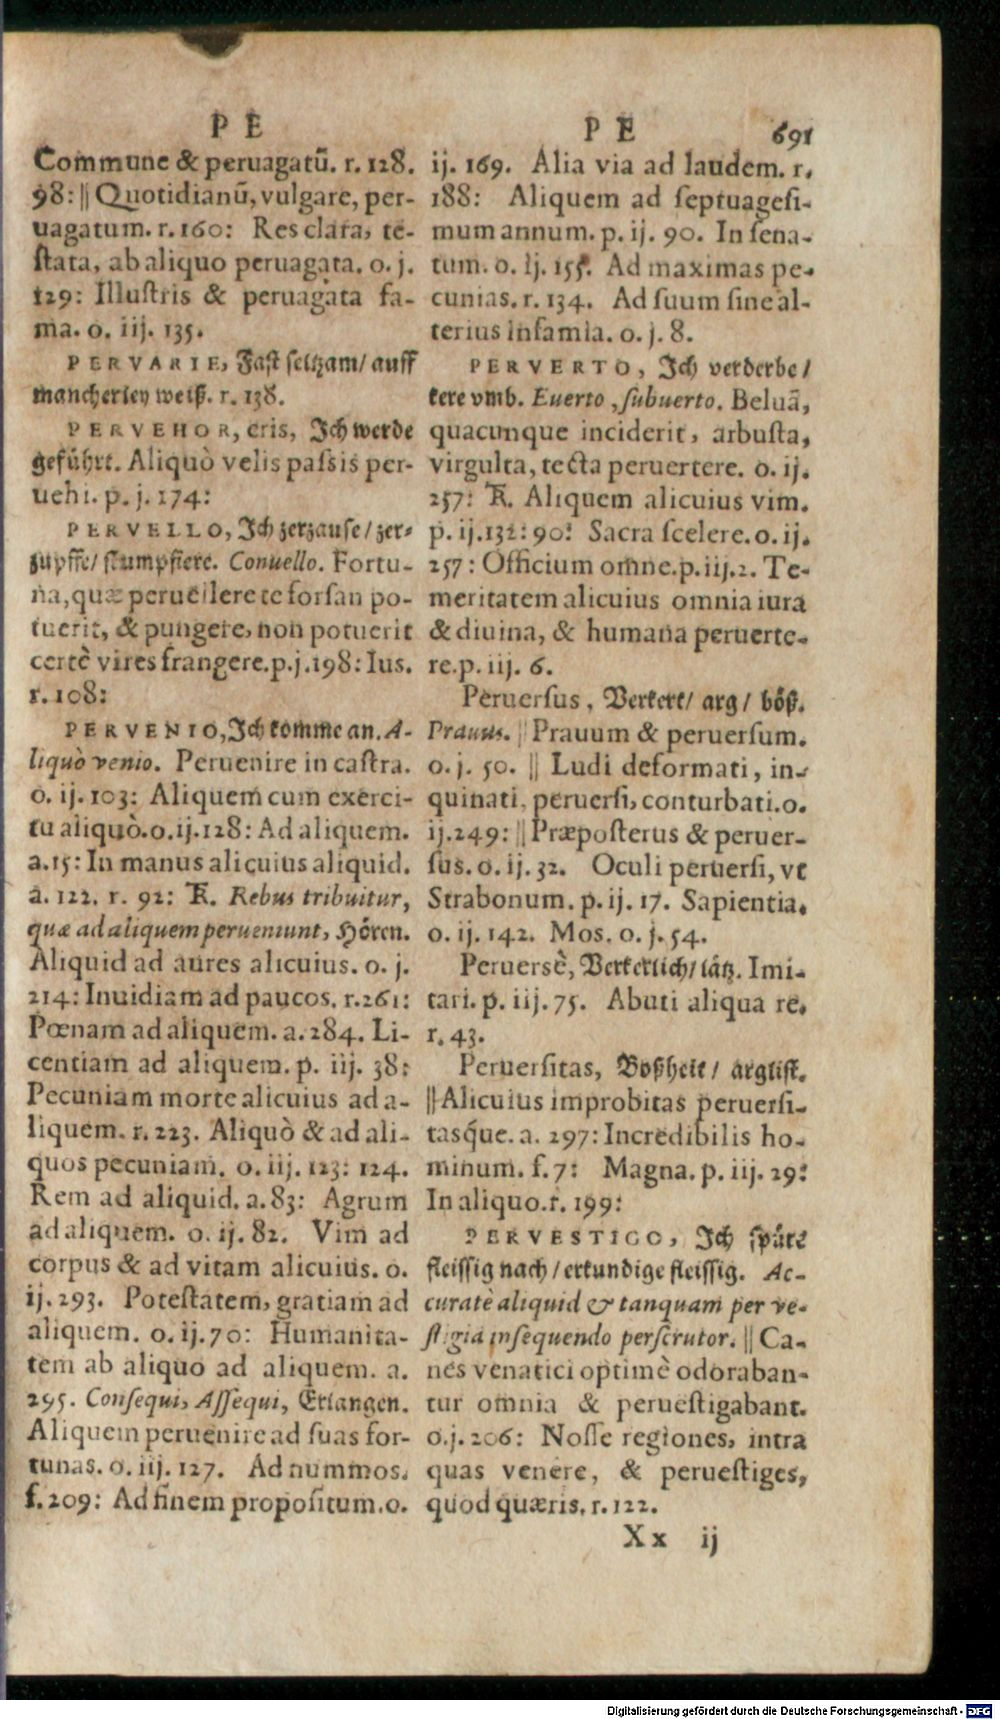 P E
Commune & peruagatū. r. 128.
98: || Quotidianū, vulgare, per-
uagatum. r. 160: Res clara, te-
stata, ab aliquo peruagata. o. j.
129: Illustris & peruagata fa-
ma. o. iij. 135.
PERVARIE, Fast seltzam/ auff
mancherley weiß. r. 138.
PERVEHOR, eris, Ich werde
geführt. Aliquò velis passis per-
uehi. p. j. 174:
PERVELLO, Ich zerzause/ zer-
zupffe/ stumpfiere. Conuello. Fortu-
na, quæ peruellere te forsan po-
tuerit, & pungere, non potuerit
certè vires frangere. p. j. 198: Ius.
r. 108:
PERVENIO, Ich komme an. A-
liquò venio. Peruenire in castra.
o. ij. 103: Aliquem cum exerci-
tu aliquò. o. ij. 128: Ad aliquem.
a. 15: In manus alicuius aliquid.
a. 122. r. 92: R. Rebus tribuitur,
quæ ad aliquem perueniunt, Hören.
Aliquid ad aures alicuius. o. j.
214: Inuidiam ad paucos. r. 261:
Pœnam ad aliquem. a. 284. Li-
centiam ad aliquem. p. iij. 38:
Pecuniam morte alicuius ad a-
liquem. r. 223. Aliquò & ad ali-
quos pecuniam. o. iij. 123: 124.
Rem ad aliquid. a. 83: Agrum
ad aliquem. o. ij. 82. Vim ad
corpus & ad vitam alicuius. o.
ij. 293. Potestatem, gratiam ad
aliquem. o. ij. 70: Humanita-
tem ab aliquo ad aliquem. a.
295. Consequi, Assequi, Erlangen.
Aliquem peruenire ad suas for-
tunas. o. iij. 127. Ad nummos.
f. 209: Ad finem propositum. o.
P E 691
ij. 169. Alia via ad laudem. r.
188: Aliquem ad septuagesi-
mum annum. p. ij. 90. In sena-
tum. o. ij. 155. Ad maximas pe-
cunias. r. 134. Ad suum sine al-
terius infamia. o. j. 8.
PERVERTO, Ich verderbe/
kere vmb. Euerto, subuerto. Beluā,
quacunque inciderit, arbusta,
virgulta, tecta peruertere. o. ij.
257: R. Aliquem alicuius vim.
p. ij. 132: 90: Sacra scelere. o. ij.
257: Officium omne. p. iij. 2. Te-
meritatem alicuius omnia iura
& diuina, & humana peruerte-
re. p. iij. 6.
Peruersus, Verkert/ arg/ böß.
Prauus. || Prauum & peruersum.
o. j. 50. || Ludi deformati, in-
quinati, peruersi, conturbati. o.
ij. 249: || Præposterus & peruer-
sus. o. ij. 32. Oculi peruersi, vt
Strabonum. p. ij. 17. Sapientia.
o. ij. 142. Mos. o. j. 54.
Peruersè, Verkerlich/ lätz. Imi-
tari. p. iij. 75. Abuti aliqua re.
r. 43.
Peruersitas, Boßheit/ arglist.
|| Alicuius improbitas peruersi-
tasq́ue. a. 297: Incredibilis ho-
minum. f. 7: Magna. p. iij. 29:
In aliquo. r. 199:
PERVESTIGO, Ich späre
fleissig nach/ erkundige fleissig. Ac-
curatè aliquid & tanquam per ve-
stigia insequendo perscrutor. || Ca-
nes venatici optimè odoraban-
tur omnia & peruestigabant.
o. j. 206: Nosse regiones, intra
quas venere, & peruestiges,
quod quæris. r. 122.
Xx ij
Digitalisierung gefördert durch die Deutsche Forschungsgemeinschaft - DFG